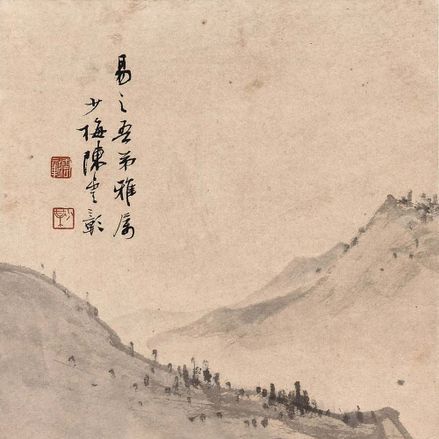 易之吾弟雅属
少梅陳雲彰